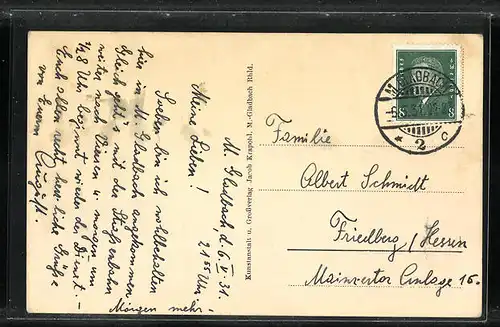 M. Gladbach, d. 6. V. 31.
21 55 Uhr
Meine Lieben!
Soeben bin ich wohlbehalten
hier in M. Gladbach angekommen.
Gleich geht's mit der Straßenbahn
weiter nach Viersen u. morgen um
1/2 8 Uhr beginnt wieder der Dienst. -
Euch allen recht herzliche Grüße
von Eurem August.
Morgen mehr. -
Kunstanstalt u. Großverlag Jacob Krapohl, M.-Gladbach Rhld.
8 8
M. GLADBACH
* 2 c
Familie
Albert Schmidt
Friedberg / Hessen
Mainzertor Anlage 16.